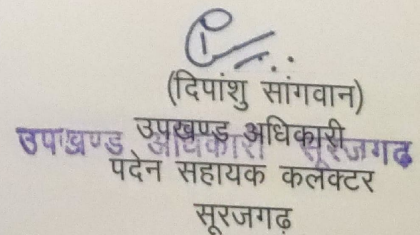 (दिपांशु सांगवान)
उपखण्ड अधिकारी
उपखण्ड अधिकारी सूरजगढ
पदेन सहायक कलेक्टर
सूरजगढ़